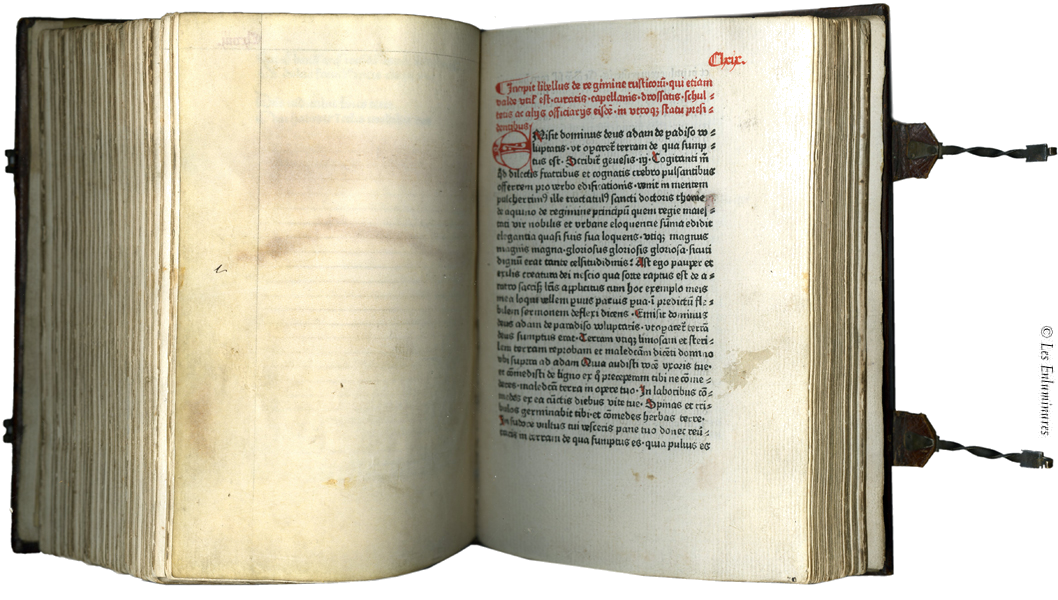 Clxix.
Incipit libellus de regimine rusticorū·qui etiam
valde vtil' est·curatis·capellanis·drossatis·schul⸗
tetis ac alijs officiarijs eisdē·in vtroqꝫ statu presi⸗
dentibus
EMisit dominus deus adam de padiso vo⸗
luptatis·vt oparet̄ terram de qua sump⸗
tus est·Scribit̄ genesis·iij·Cogitanti m̄
qd dilectis fratribus et cognatis crebro pulsantibus
offerrem pro verbo edificationis·venit in mentem
pulcherrim⁹ ille tractatul⁹ sancti doctoris thome
de aquino de regimine principū quem regie maies⸗
tati vir nobilis et vrbane eloquentie sūma edidit
elegantia quasi suis sua loquens·vtiqꝫ magnus
magnis magna·gloriosus gloriosis gloriosa·sicuti
dignū erat tante celsitudinis: Ast ego pauper et
exilis creatura dei nescio qua sorte raptus est de a⸗
applicitus cum hoc exemplo meis
mea loqui vellem puus paruis pua·ī predictū fle⸗
bilem sermonem deflexi dicens·Emisit dominus
deus adam de paradiso voluptatis·vt oparet̄ terrā
de qua sumptus erat·Terram vtiqꝫ limosam et steri⸗
lem terram reprobam et maledictā dicēti domino
vbi supra ad adam Quia audisti vocē vxoris tue·
et cōmedisti de ligno ex q̄ preceperam tibi ne cōme⸗
deres·maledctā terra in opere tuo·In laboribus cō⸗
medes ex ea cūctis diebus vite tue·Spinas et tri⸗
bulos germinabit tibi·et cōmedes herbas terre·
In sudore vultus tui vesceris pane tuo donec reū⸗
taris in terram de qua sumptus es·quia puluis es
© Les Enluminures